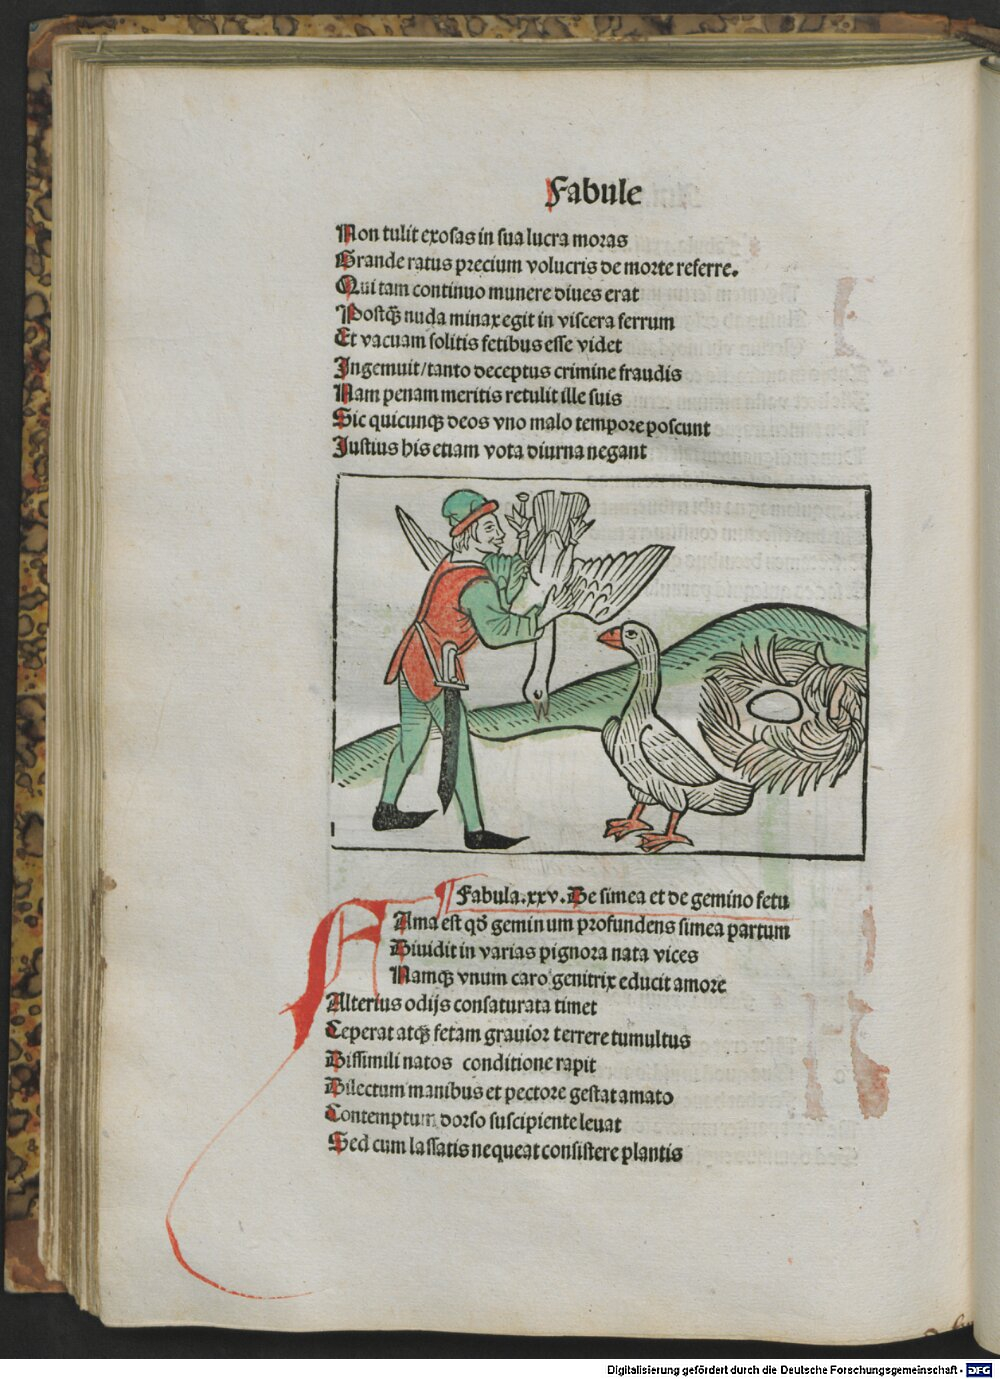 Fabule
Non tulit exosas in sua lucra moras
Grande ratus precium volucris de morte referre.
Qui tam continuo munere diues erat
Postq̄ nuda minax egit in viscera ferrum
Et vacuam solitis fetibus esse videt
Ingemuit/tanto deceptus crimine fraudis
Nam penam meritis retulit ille suis
Sic quicunqꝫ deos vno malo tempore poscunt
Justius his etiam vota diurna negant
Fabula.xxv.De simea et de gemino fetu
Ama est qð geminum profundens simea partum
Diuidit in varias pignora nata vices
Namqꝫ vnum caro genitrix educit amore
Alterius odijs consaturata timet
Ceperat atqꝫ fetam grauior terrere tumultus
Dissimili natos conditione rapit
Dilectum manibus et pectore gestat amato
Contemptum dorso suscipiente leuat
Sed cum lassatis nequeat consistere plantis
Digitalisierung gefördert durch die Deutsche Forschungsgemeinschaft - DFG